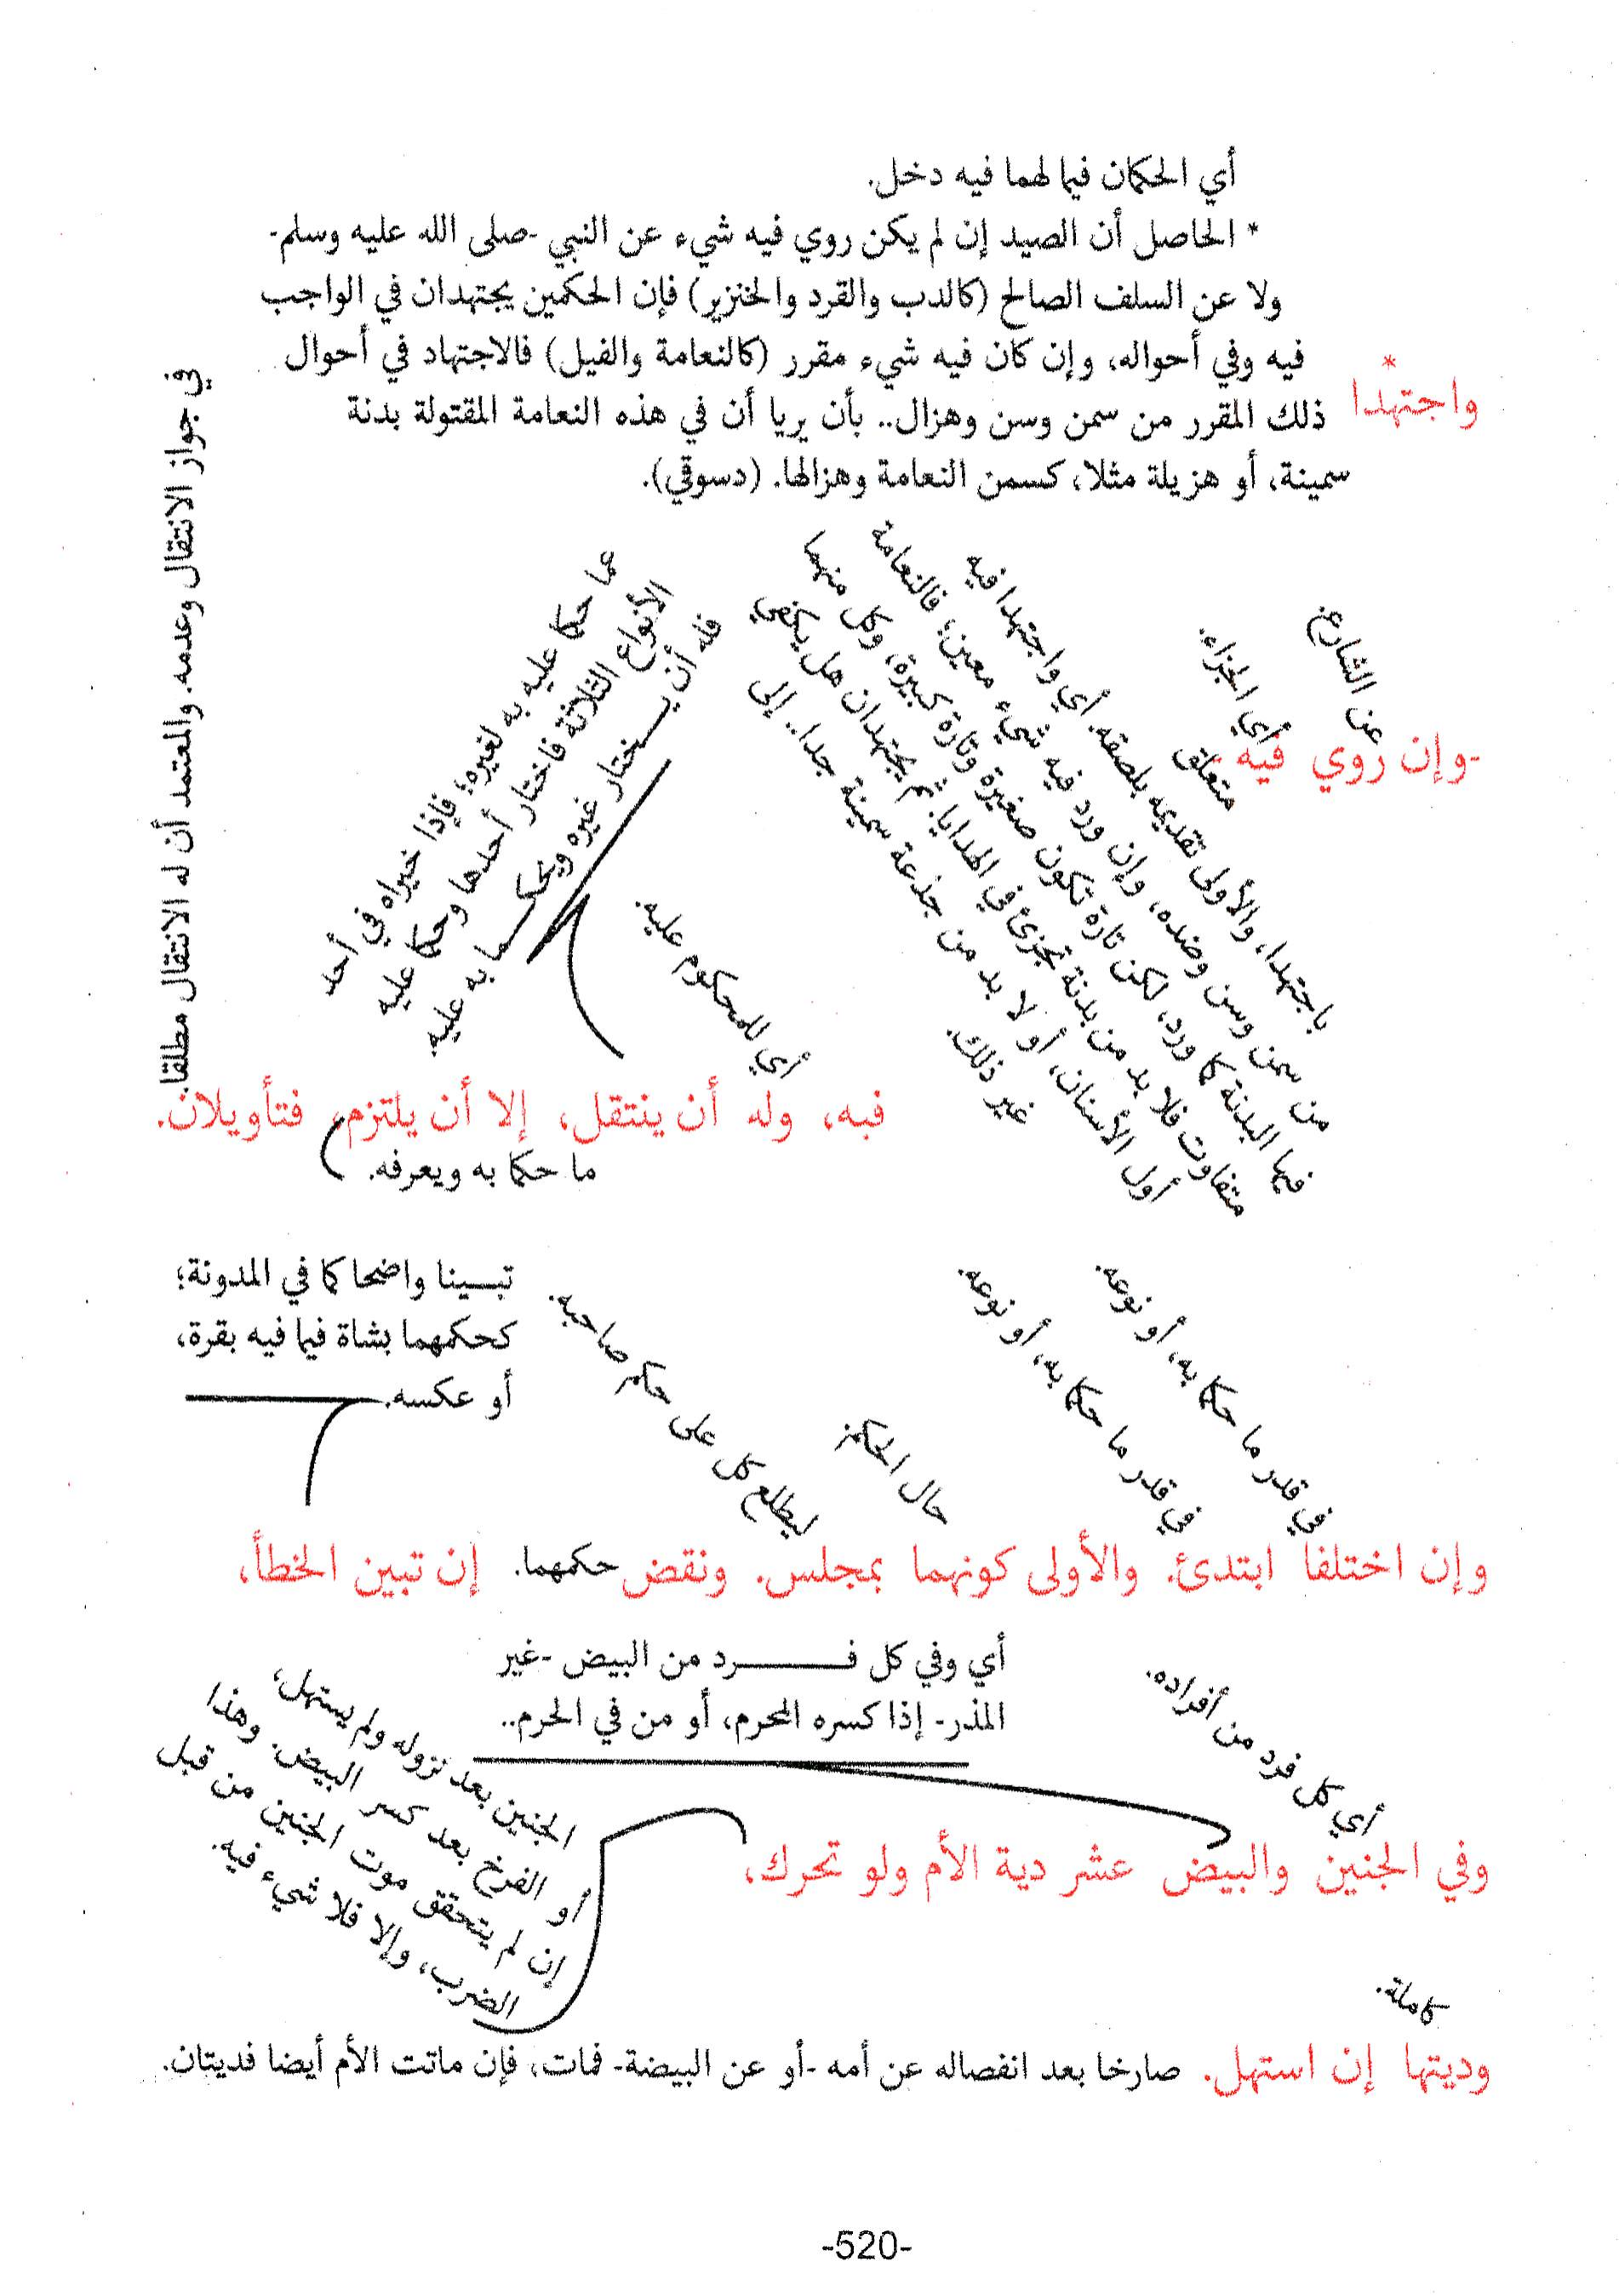 أي الحكمان فيما لهما فيه دخل.
* الحاصل أن الصيد إن لم يكن روي فيه شيء عن النبي -صلى الله عليه وسلم-
ولا عن السلف الصالح (كالدب والقرد والخنزير) فإن الحكمين يجتهدان في الواجب
فيه وفي أحواله، وإن كان فيه شيء مقرر (كالنعامة والفيل) فالاجتهاد في أحوال
واجتهدا*
ذلك المقرر من سمن وسن وهزال.. بأن يريا أن في هذه النعامة المقتولة بدنة
سمينة، أو هزيلة مثلا، كسمن النعامة وهزالها. (دسوقي).
-وإن روي فيه-
عن الشارع.
أي الجزاء.
متعلق
باجتهدا، والأولى تقديمه بلصقه. أي واجتهدا فيه
من سمن وسن وضده، وإن ورد فيه شيء معين؛ فالنعامة
فيها البدنة كما ورد، لكن تارة تكون صغيرة وتارة كبيرة، وكل منهما
متفاوت فلا بد من بدنة تجزئ في الهدايا. ثم يجتهدان هل يكفي
أول الأسنان، أو لا بد من جذعة سمينة جدا.. إلى
غير ذلك.
فبه، وله أن ينتقل، إلا أن يلتزم، فتأويلان.
أي للمحكوم عليه.
عما حكما عليه به لغيره؛ فإذا خيراه في أحد
الأنواع الثلاثة فاختار أحدها وحكما عليه
فله أن يختار غيره ويحكما به عليه.
ما حكما به ويعرفه.
في جواز الانتقال وعدمه. والمعتمد أن له الانتقال مطلقا.
في قدر ما حكما به، أو نوعه.
في قدر ما حكما به، أو نوعه.
حال الحكم
ليطلع كل على حكم صاحبه.
تبينا واضحا كما في المدونة؛
كحكمهما بشاة فيما فيه بقرة،
أو عكسه.
وإن اختلفا ابتدئ. والأولى كونهما بمجلس. ونقض حكمهما. إن تبين الخطأ،
أي كل فرد من أفراده.
أي وفي كل فرد من البيض -غير
المذر- إذا كسره المحرم، أو من في الحرم..
وفي الجنين والبيض عشر دية الأم ولو تحرك،
الجنين بعد نزوله ولم يستهل،
أو الفرخ بعد كسر البيض. وهذا
إن لم يتحقق موت الجنين من قبل
الضرب، وإلا فلا شيء فيه.
كاملة.
وديتها إن استهل. صارخا بعد انفصاله عن أمه -أو عن البيضة- فمات، فإن ماتت الأم أيضا فديتان.
-520-